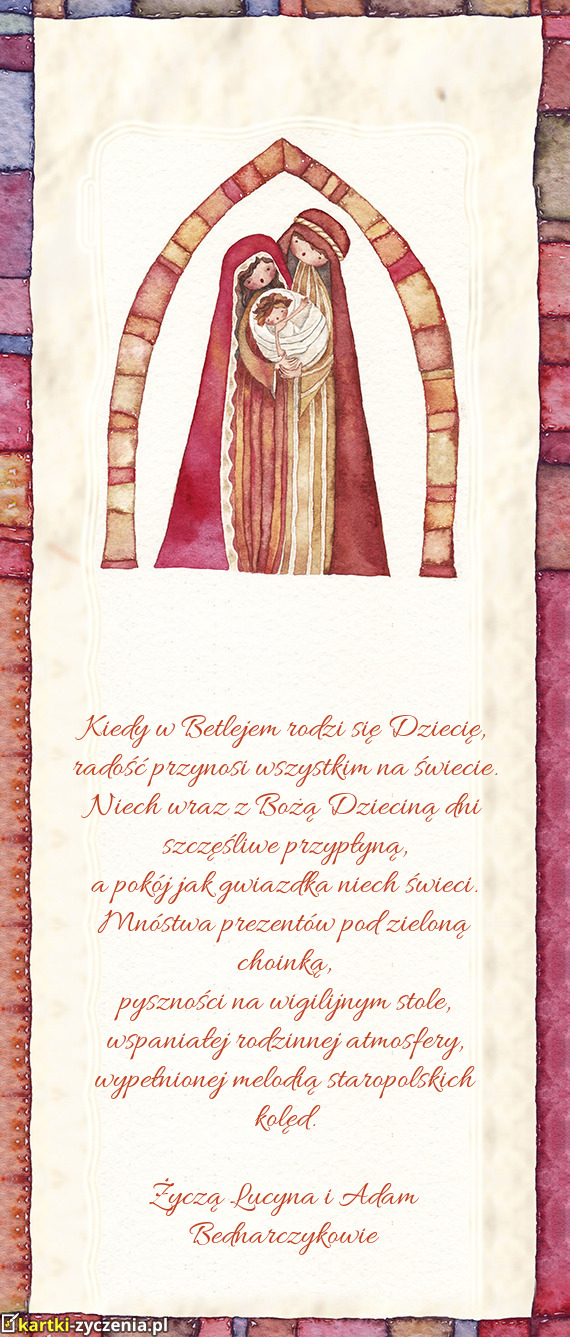 Kiedy w Betlejem rodzi się Dziecię,
radość przynosi wszystkim na świecie.
Niech wraz z Bożą Dzieciną dni
szczęśliwe przypłyną,
a pokój jak gwiazdka niech świeci.
Mnóstwa prezentów pod zieloną
choinką,
pyszności na wigilijnym stole,
wspaniałej rodzinnej atmosfery,
wypełnionej melodią staropolskich
kolęd.
Życzą Lucyna i Adam
Bednarczykowie
kartki-zyczenia.pl